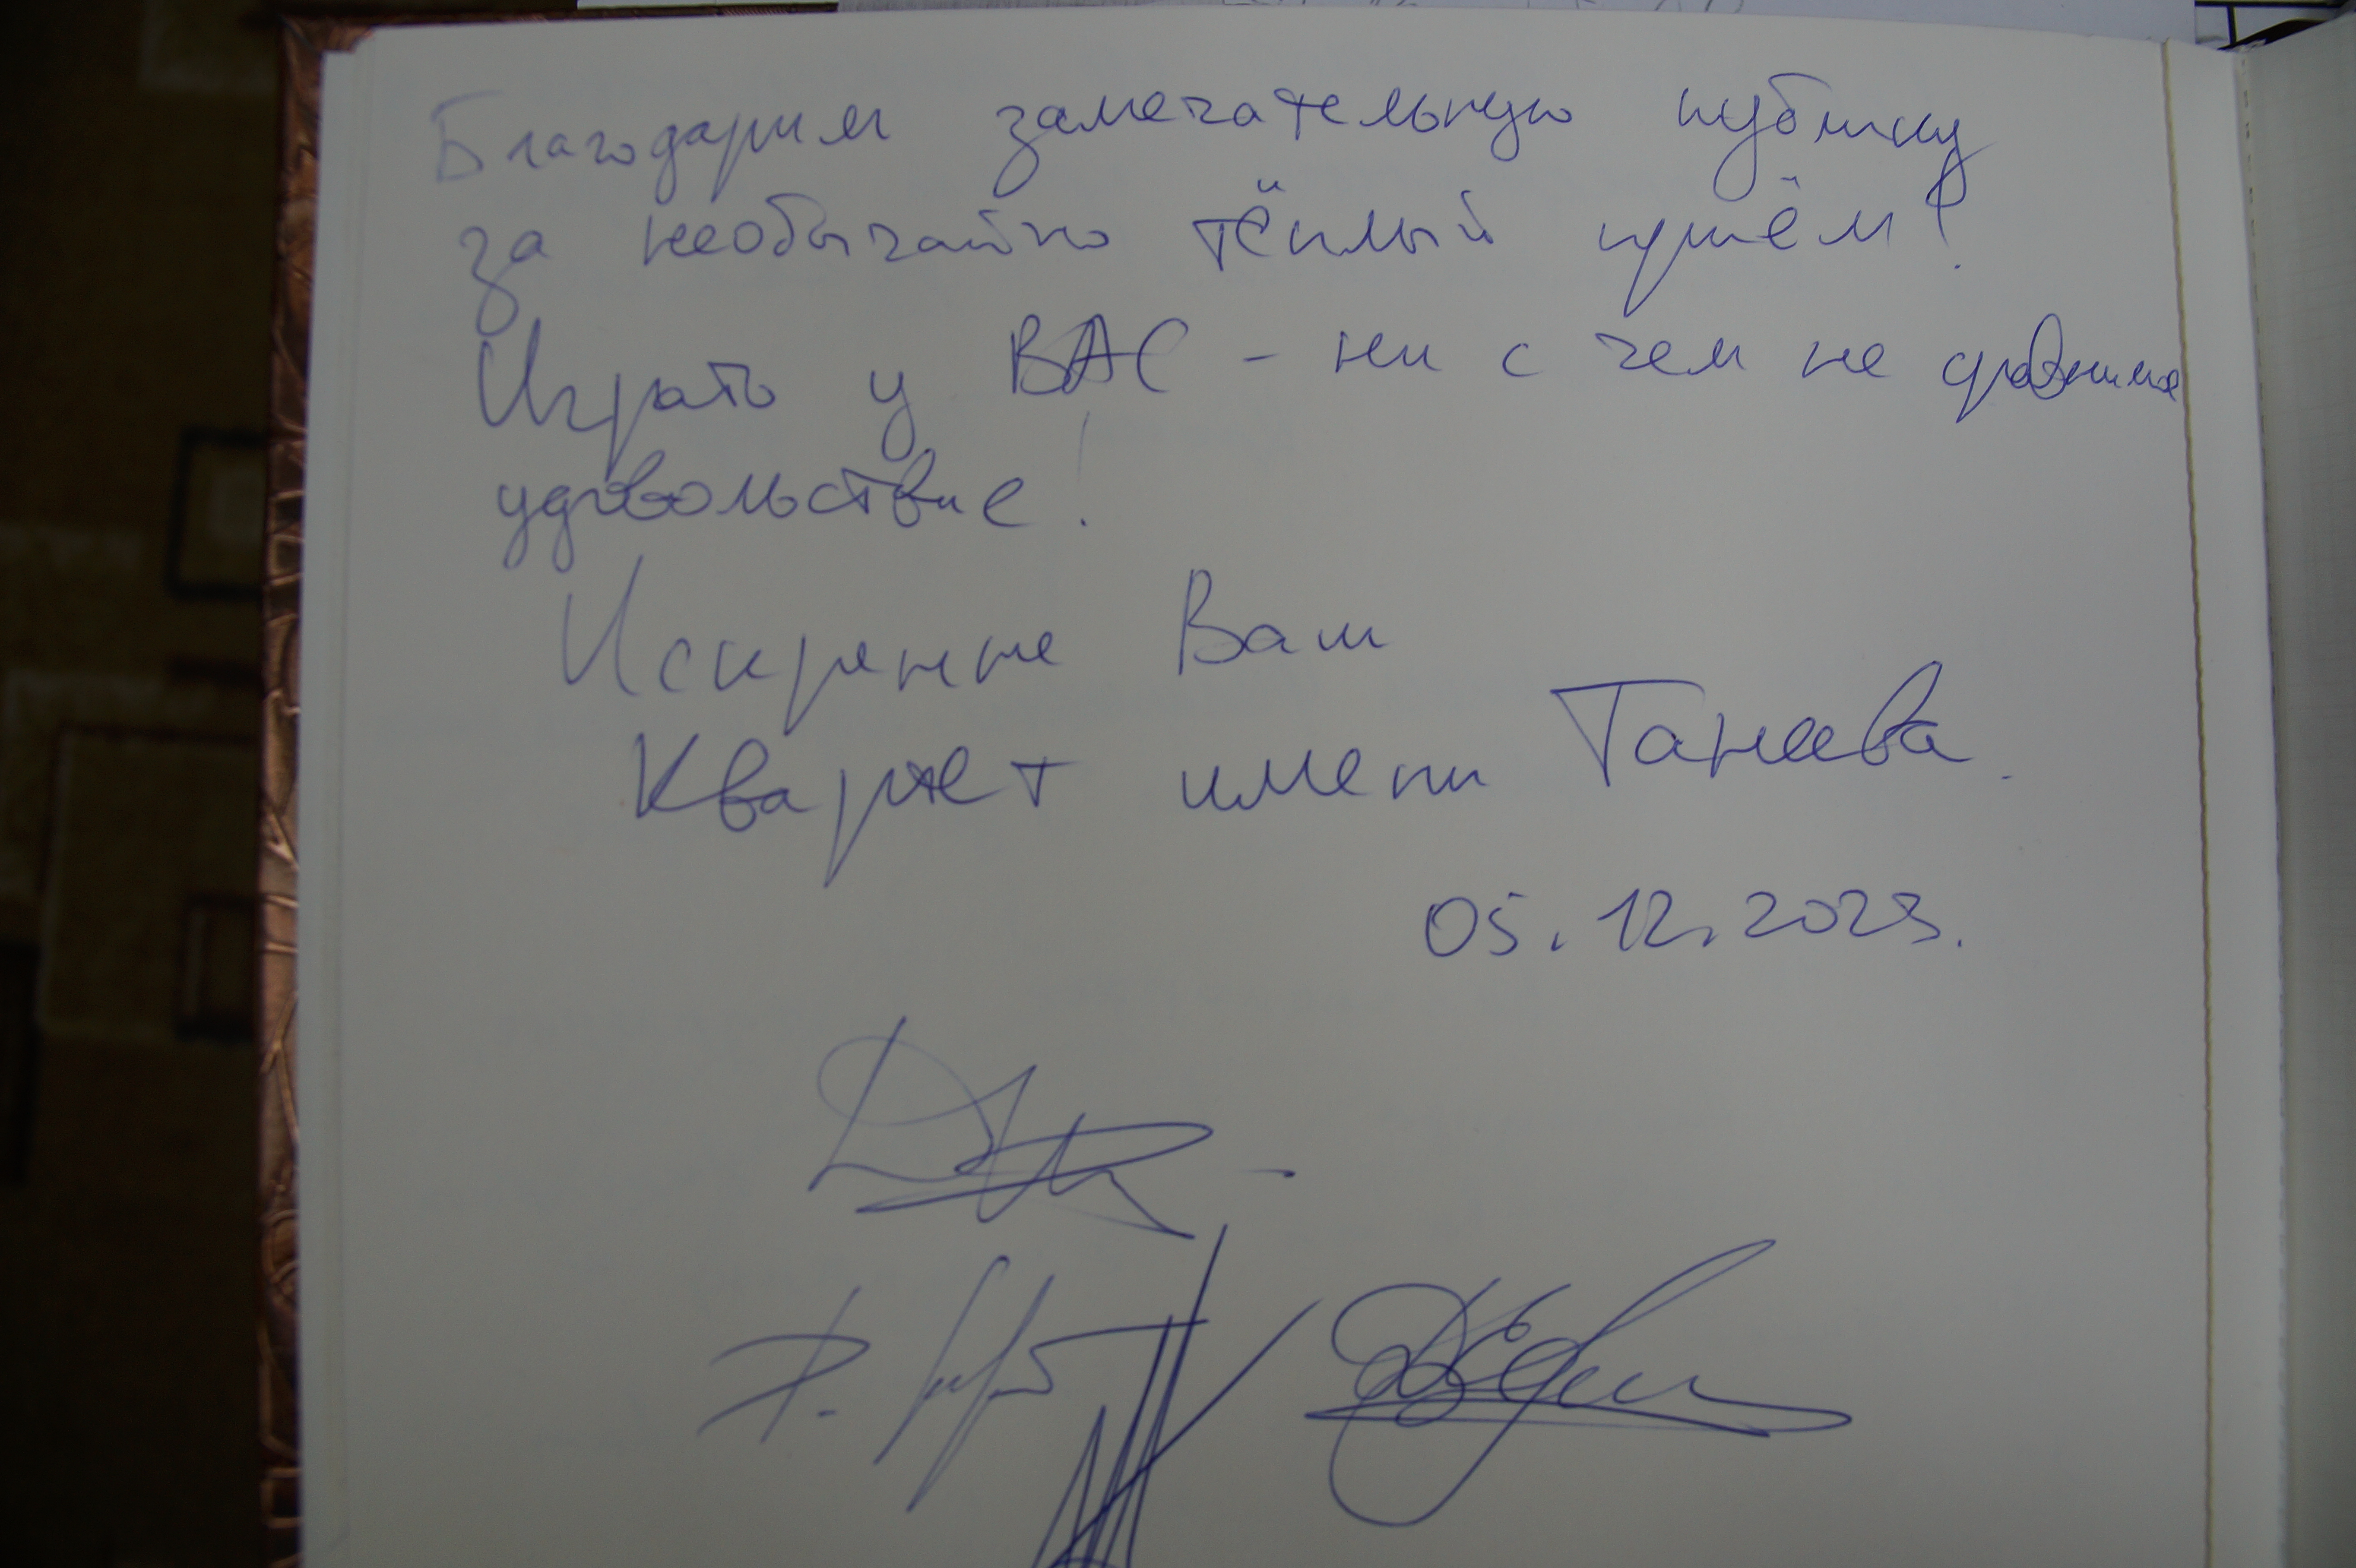 Благодарим замечательную публику
за необычайно тёплый приём!
Играть у ВАС - ни с чем не сравнимое
удовольствие!
Искренне Ваш
Квартет имени Танеева.
05.12.2023.